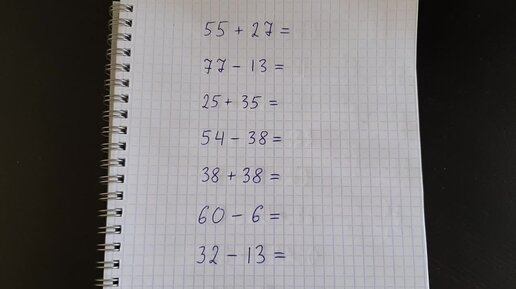 55 + 27 =
77 - 13 =
25 + 35 =
54 - 38 =
38 + 38 =
60 - 6 =
32 - 13 =